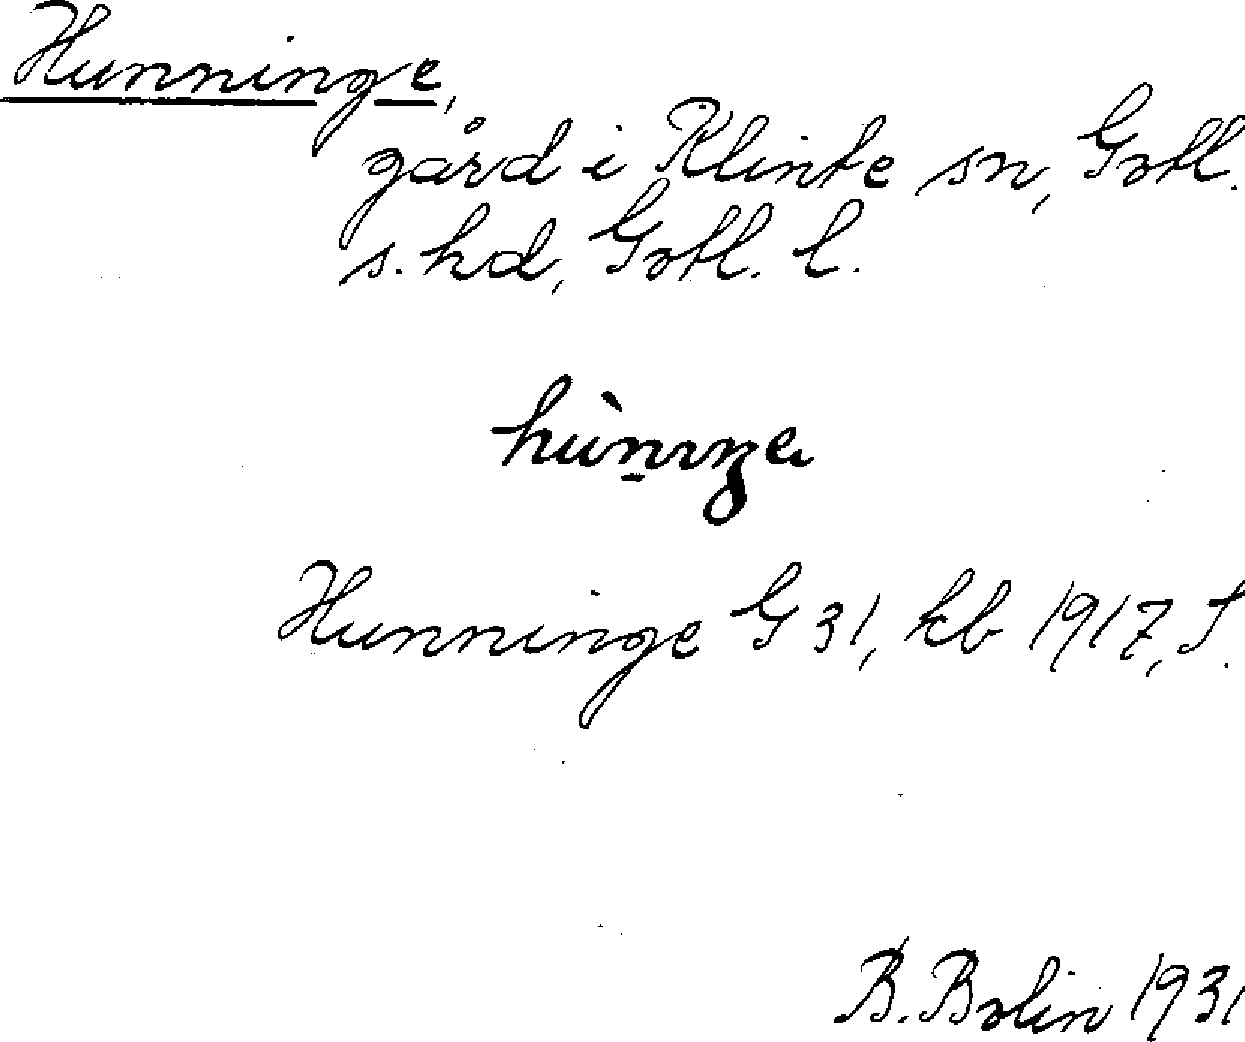 Hunninge,
gård i Klinte sn, Gotl.
s. hd, Gotl. l.
Hunninge G 31, kb 1917, J.
B. Bolin 1931